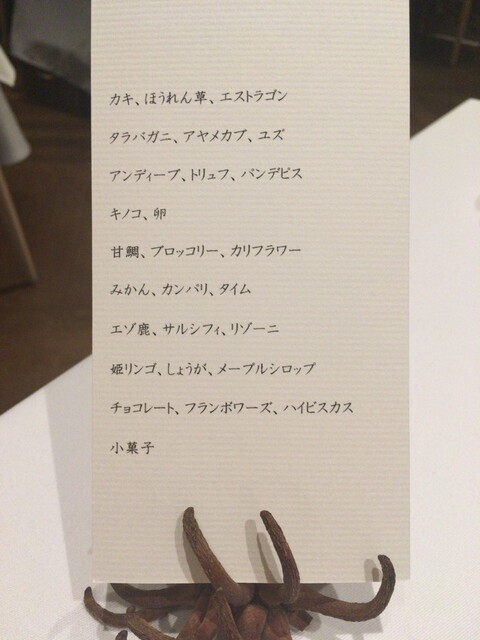 カキ、ほうれん草、エストラゴン
タラバガニ、アヤメカブ、ユズ
アンディーブ、トリュフ、パンデピス
キノコ、卵
甘鯛、ブロッコリー、カリフラワー
みかん、カンパリ、タイム
エゾ鹿、サルシフィ、リゾーニ
姫リンゴ、しょうが、メープルシロップ
チョコレート、フランボワーズ、ハイビスカス
小菓子